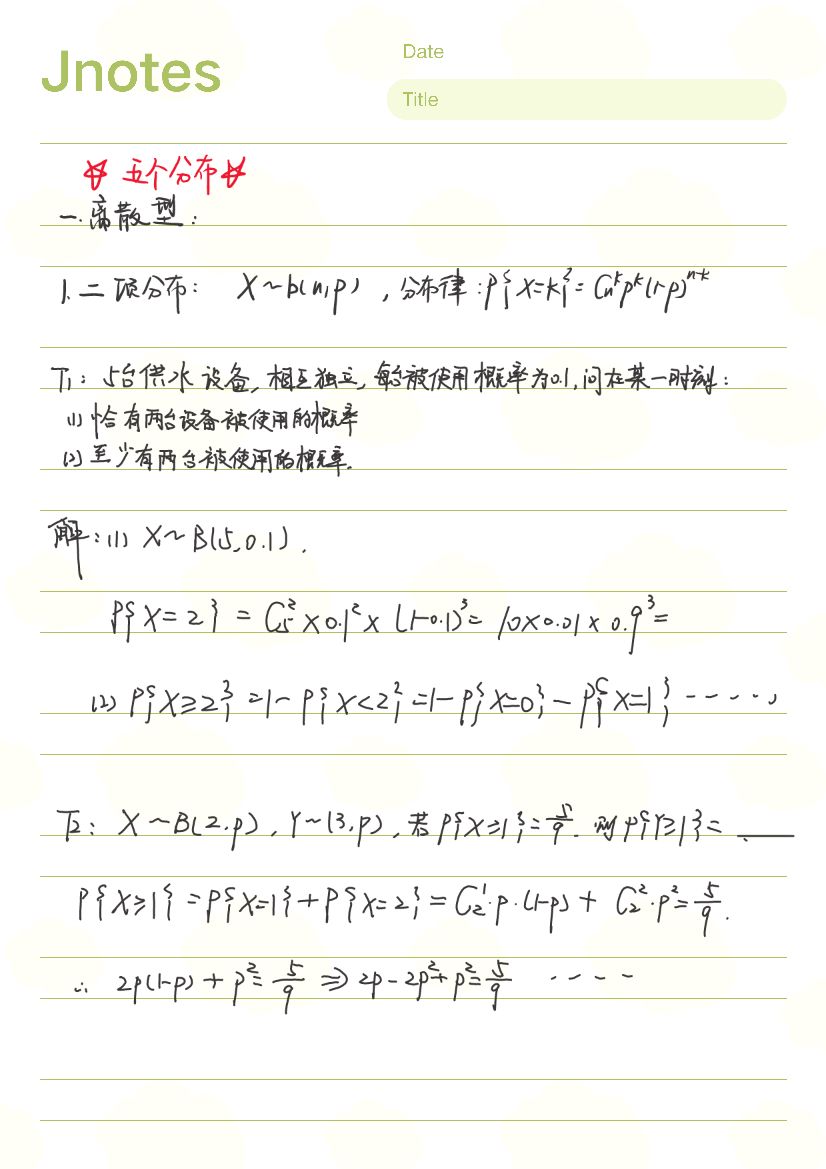 Jnotes
Date
Title
五个分布
一.离散型:
1.二项分布: X~b(n,p),分布律:P{X=k}=Cₙᵏpᵏ(1-p)ⁿ⁻ᵏ
T1:5台供水设备,相互独立,每台被使用概率为0.1,问在某一时刻:
(1)恰有两台设备被使用的概率
(2)至少有两台被使用的概率.
解:(1) X~B(5,0.1).
P{X=2}=C₅²×0.1²×(1-0.1)³=10×0.01×0.9³=
(2) P{X≥2}=1-P{X<2}=1-P{X=0}-P{X=1}-----,
T2: X~B(2.p),Y~(3.p),若P{X≥1}=5/9.则P{Y≥1}=____
P{X≥1}=P{X=1}+P{X=2}=C₂¹·p·(1-p)+C₂²·p²=5/9.
∴ 2p(1-p)+p²=5/9⇒2p-2p²+p²=5/9 ----